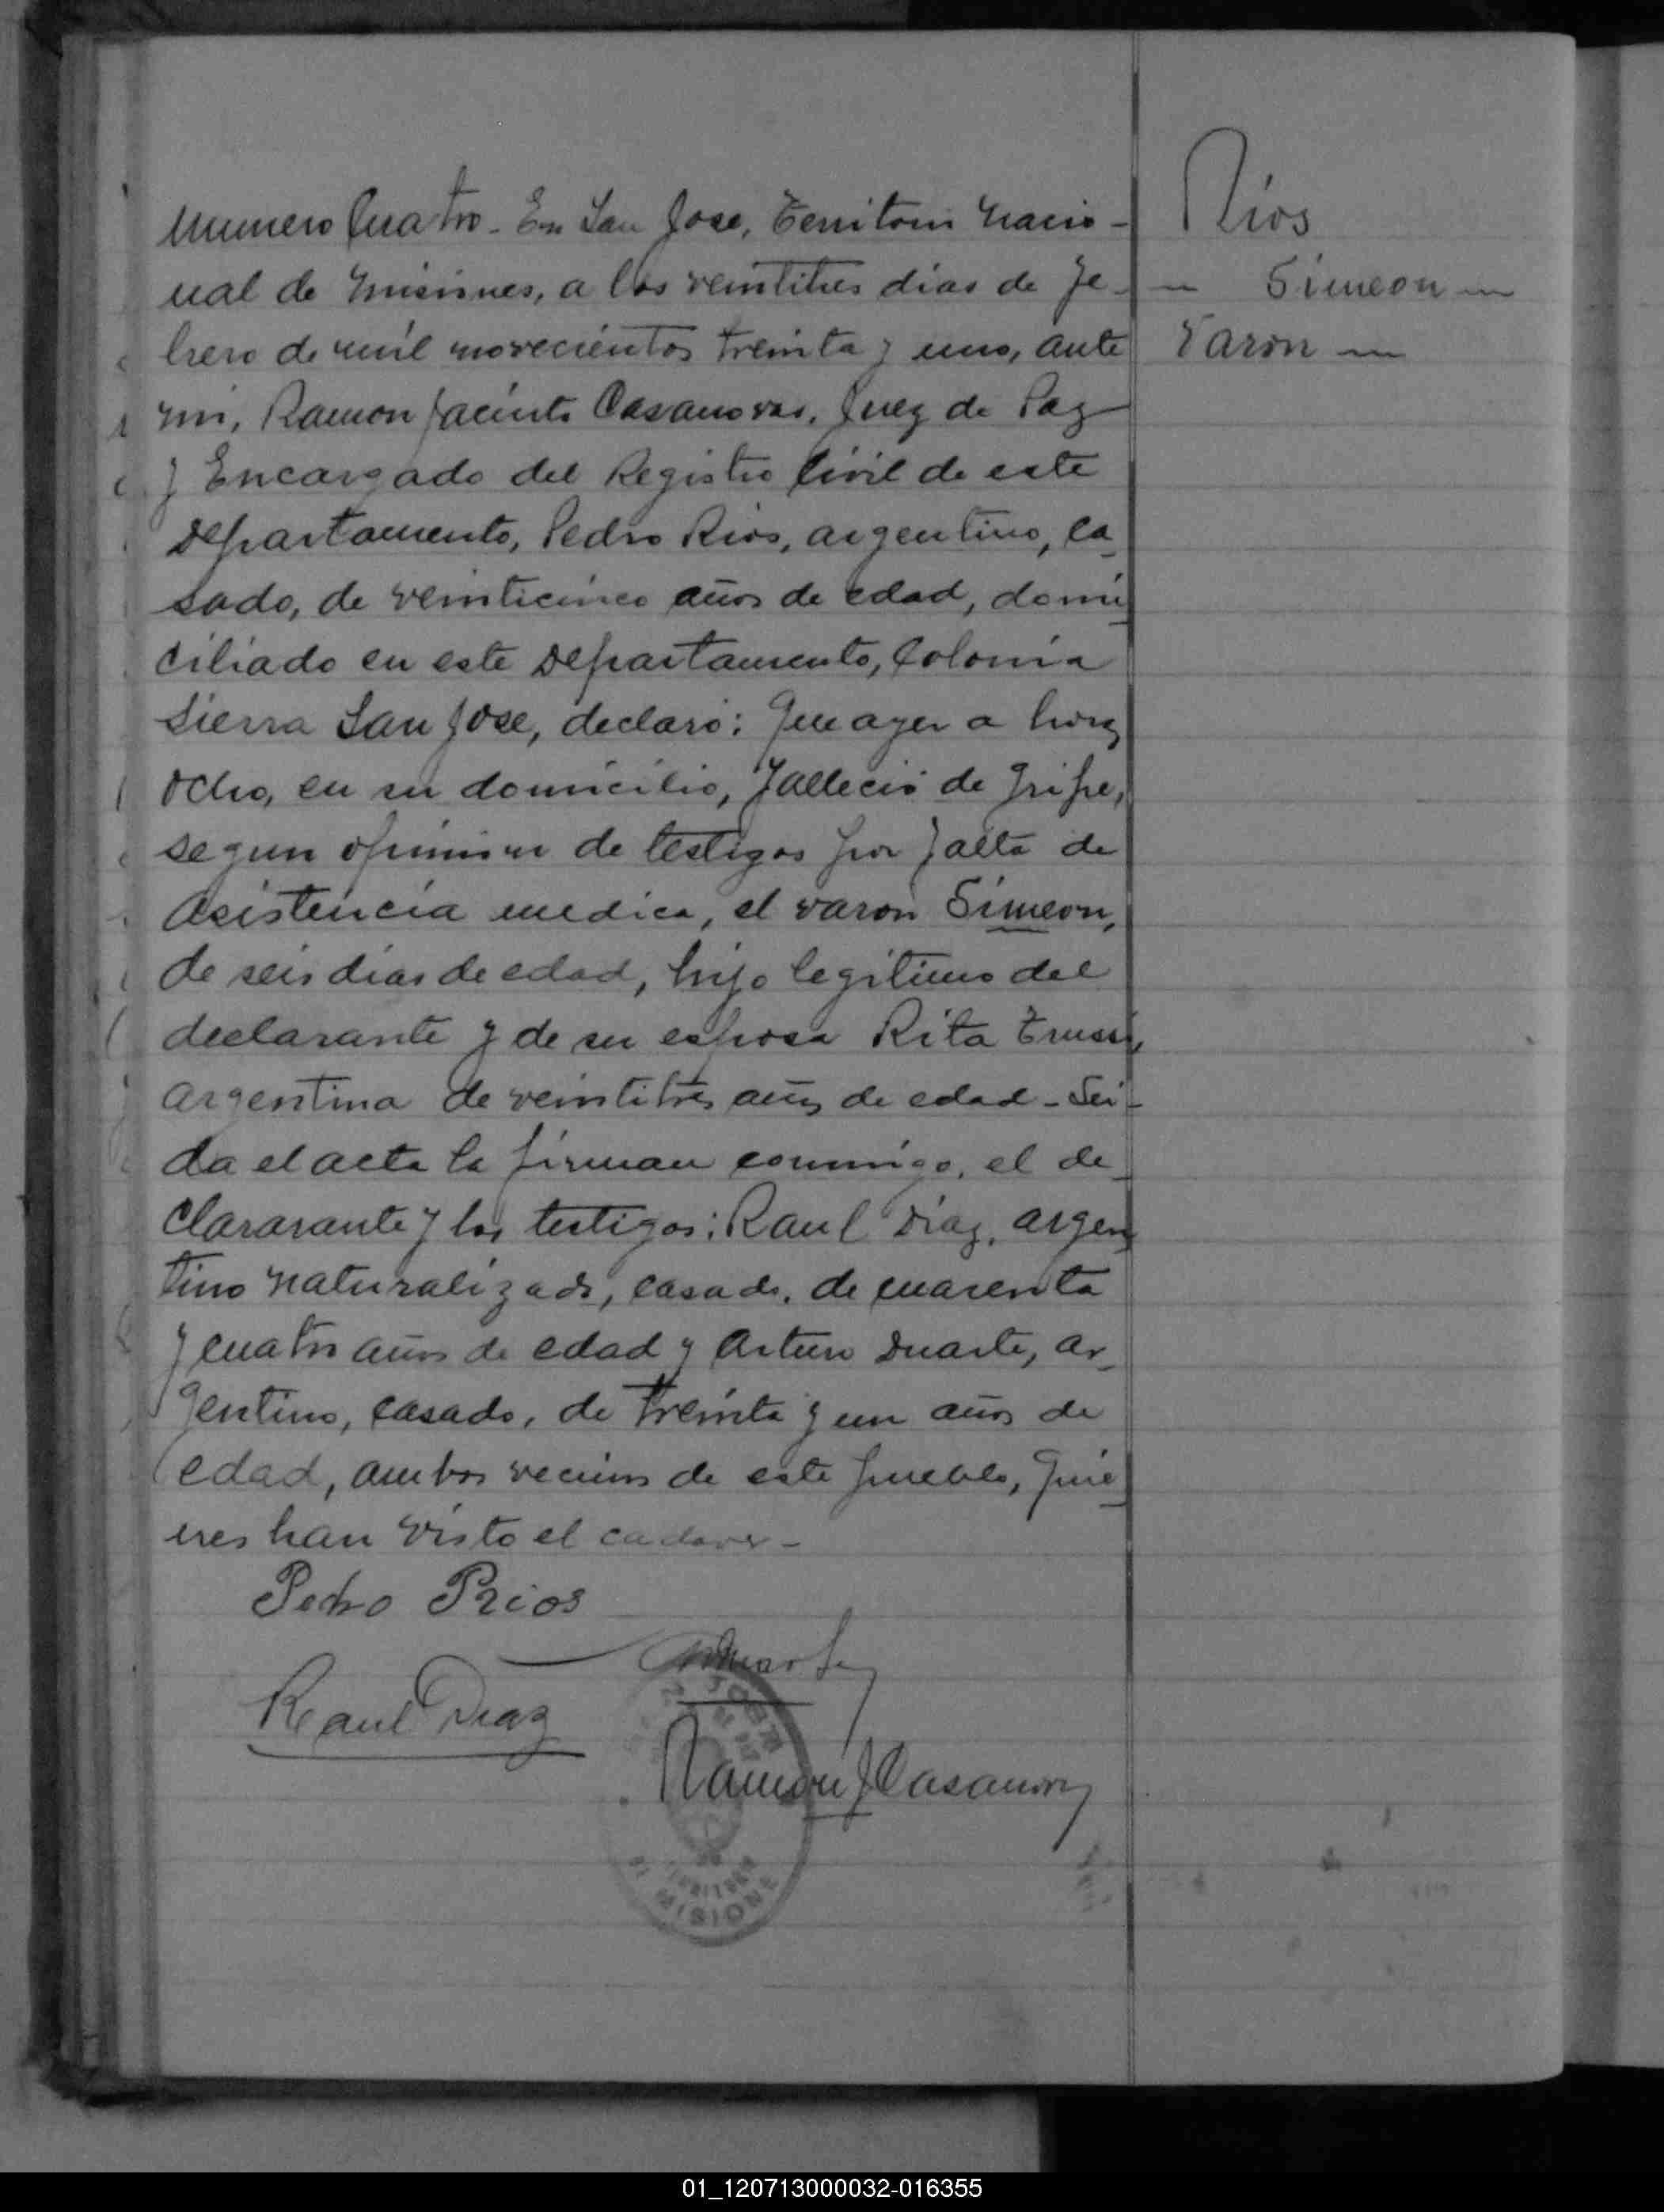 Numero Cuatro - En San Jose, Territorio Nacio-
nal de Misiones, a los veintitres dias de Fe-
brero de mil novecientos treinta y uno, ante
mi, Ramon Jacinto Casanovas, Juez de Paz
y Encargado del Registro Civil de este
Departamento, Pedro Rios, argentino, ca-
sado, de veinticinco años de edad, domi-
ciliado en este Departamento, Colonia
Sierra San Jose, declaró: Que ayer a horas
ocho, en su domicilio, falleció de gripe,
segun opinion de testigos por falta de
asistencia medica, el varon Simeon,
de seis dias de edad, hijo legitimo del
declarante y de su esposa Rita
argentina de veintitres años de edad - Lei-
da el acta la firman conmigo, el de-
clararante y los testigos: Raul Diaz, argen-
tino naturalizado, casado, de cuarenta
y cuatro años de edad y Arturo Duarte, ar-
gentino, casado, de treinta y un años de
edad, ambos vecinos de este pueblo, quie-
nes han visto el cadaver -
Pedro Rios
ADuarte
Raul Diaz
Ramon J Casanovas
MISIONE
Rios
- Simeon -
Varon -
01_120713000032-016355